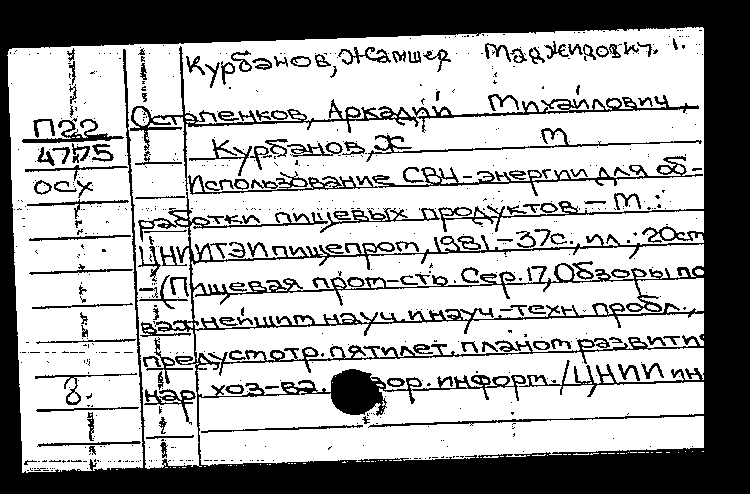 Курбанов, Жамшед Маджидович. 1.
Остапенков, Аркадий Михайлович,
П22
4775
осх
Курбанов, Ж М
Использование СВЧ-энергии для об-
работки пищевых продуктов. - М.:
ЦНИИТЭИпищепром, 1981. - 37с., ил.; 20см
(Пищевая пром-сть. Сер. 17, Обзоры по
важнейшим науч. и науч.-техн. пробл.,
предусмотр. пятилет. планом развития
нар. хоз-ва. информ. / ЦНИИ ин
8.